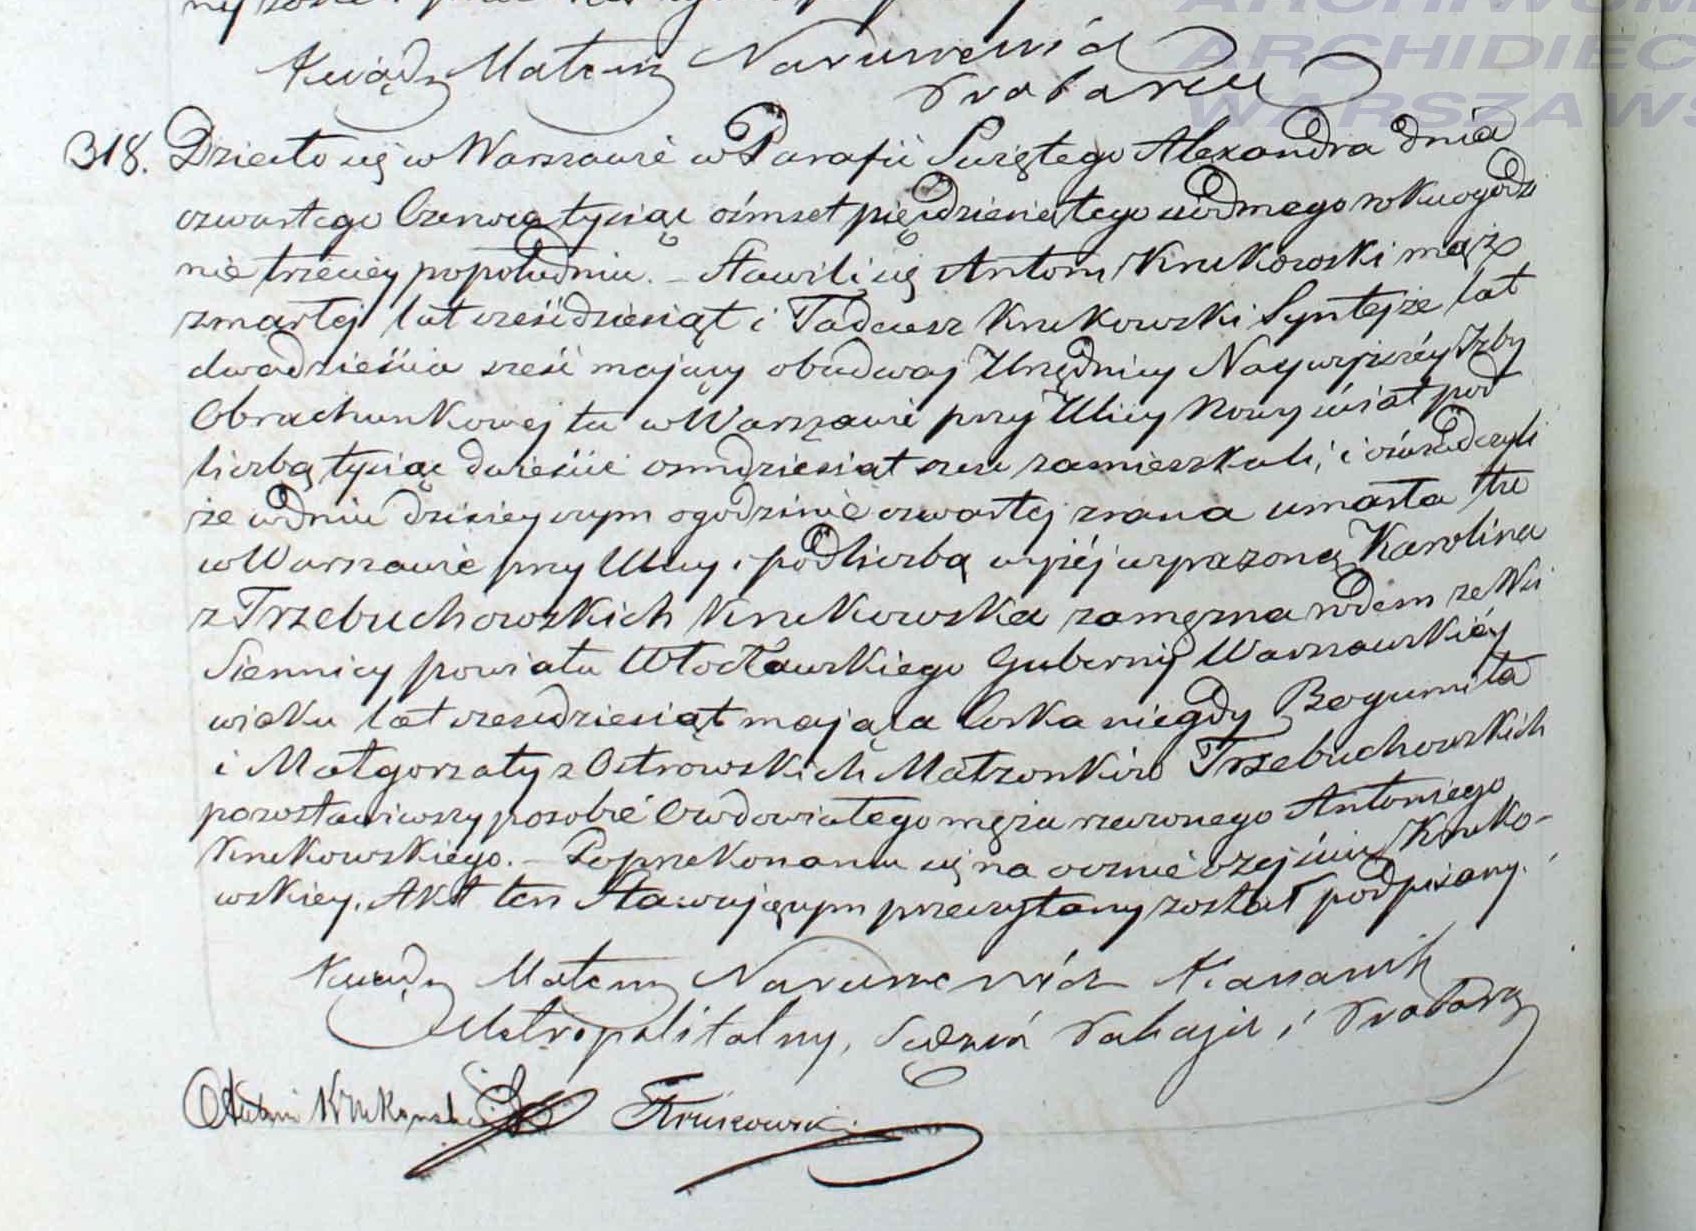 ARCHIWUM
ARCHIDIEC
WARSZAWS
Ksiądz Mateusz Naruszewicz
Proboszcz
318. Działo się w Warszawie w Parafii Świętego Alexandra dnia
czwartego Czerwca tysiąc ośmset pięćdziesiątego siódmego roku o godzi
nie trzeciey popołudniu. – Stawili się Antoni Krukowski mąż
zmarłej lat sześćdziesiąt i Tadeusz Krukowski Syn tejże lat
dwadzieścia sześć mający obadwaj Urzędnicy Naywyższéy Izby
Obrachunkowej tu w Warszawie przy Ulicy Nowy świat pod
liczbą tysiąc dwieście osmdziesiąt sześć zamieszkali, i oświadczyli
że w dniu dzisieyszym o godzinie czwartej zrana umarła tu
w Warszawie przy Ulicy i pod liczbą wyżéj wyrażoną Karolina
z Trzebuchowskich Krukowska zamężna rodem ze Wsi
Siennicy powiatu Włocławskiego Gubernij Warszawskiéy
wieku lat sześćdziesiąt mająca Córka niegdy Bogumiła
i Małgorzaty z Ostrowskich Małżonków Trzebuchowskich
pozostawiwszy po sobie Owdowiałego męża rzeczonego Antoniego
Krukowskiego. – Po przekonaniu się na ocznie o zejściu Kruko-
wskiey, Akt ten Stawającym przeczytany został podpisany.
Ksiądz Mateusz Naruszewicz Kanonik
Metropolitalny, Sędzia i
Antoni Krukowski TKrukowski